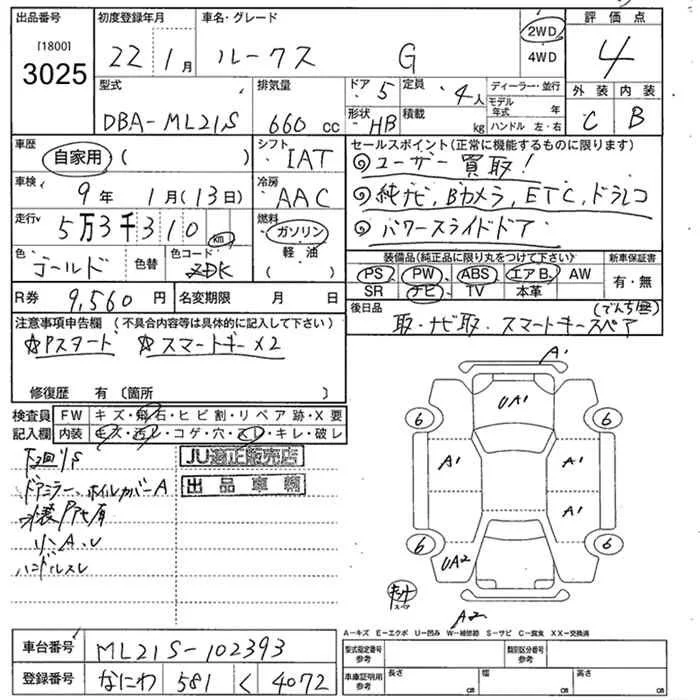 出品番号 [1800] 3025
初度登録年月 22 1月
車名・グレード ルークス G
2WD 4WD
評価点 4
型式 DBA-ML21S
排気量 660 cc
ドア 5 定員 4人
形状 HB 積載 kg
ディーラー・並行
モデル年式 年
ハンドル 左・右
外装 内装
C B
車歴 自家用 ( )
シフト IAT
車検 9年 1月(13日)
冷房 AAC
走行 5万3千310 km
燃料 ガソリン 軽油 ( )
色 ゴールド 色替 色コード ZDK
R券 9,560円 名変期限 月 日
セールスポイント(正常に機能するものに限ります)
◎ユーザー買取!
◎純ナビ,Bカメラ,ETC,ドラレコ
◎パワースライドドア
装備品(純正品に限り丸をつけて下さい) 新車保証書
PS PW ABS エアB AW 有・無
SR ナビ TV 本革
後日品 取・ナビ取・スマートキースペア (でんち無)
注意事項申告欄 (不具合内容等は具体的に記入して下さい)
☆Pスタート ☆スマートキー×2
修復歴 有 〔箇所 〕
検査員記入欄
FW キズ・飛石・ヒビ割・リペア跡・X要
内装 キズ・汚レ・コゲ・穴・スレ・キレ・破レ
下廻りS
ドアミラー、ホイルカバーA
ハンドルスレ
JU適正販売店
出品車輌
A1
UA1
6 6
A1 A1
A1
6 6
UA2
スペア
A2
A-キズ E-エクボ U-凹み W-補修跡 S-サビ C-腐食 XX-交換済
車台番号 ML21S-102393
登録番号 なにわ 581 く 4072
型式指定番号 参考 類別区分番号 参考
車庫証明用 参考 長さ cm 幅 cm 高さ cm